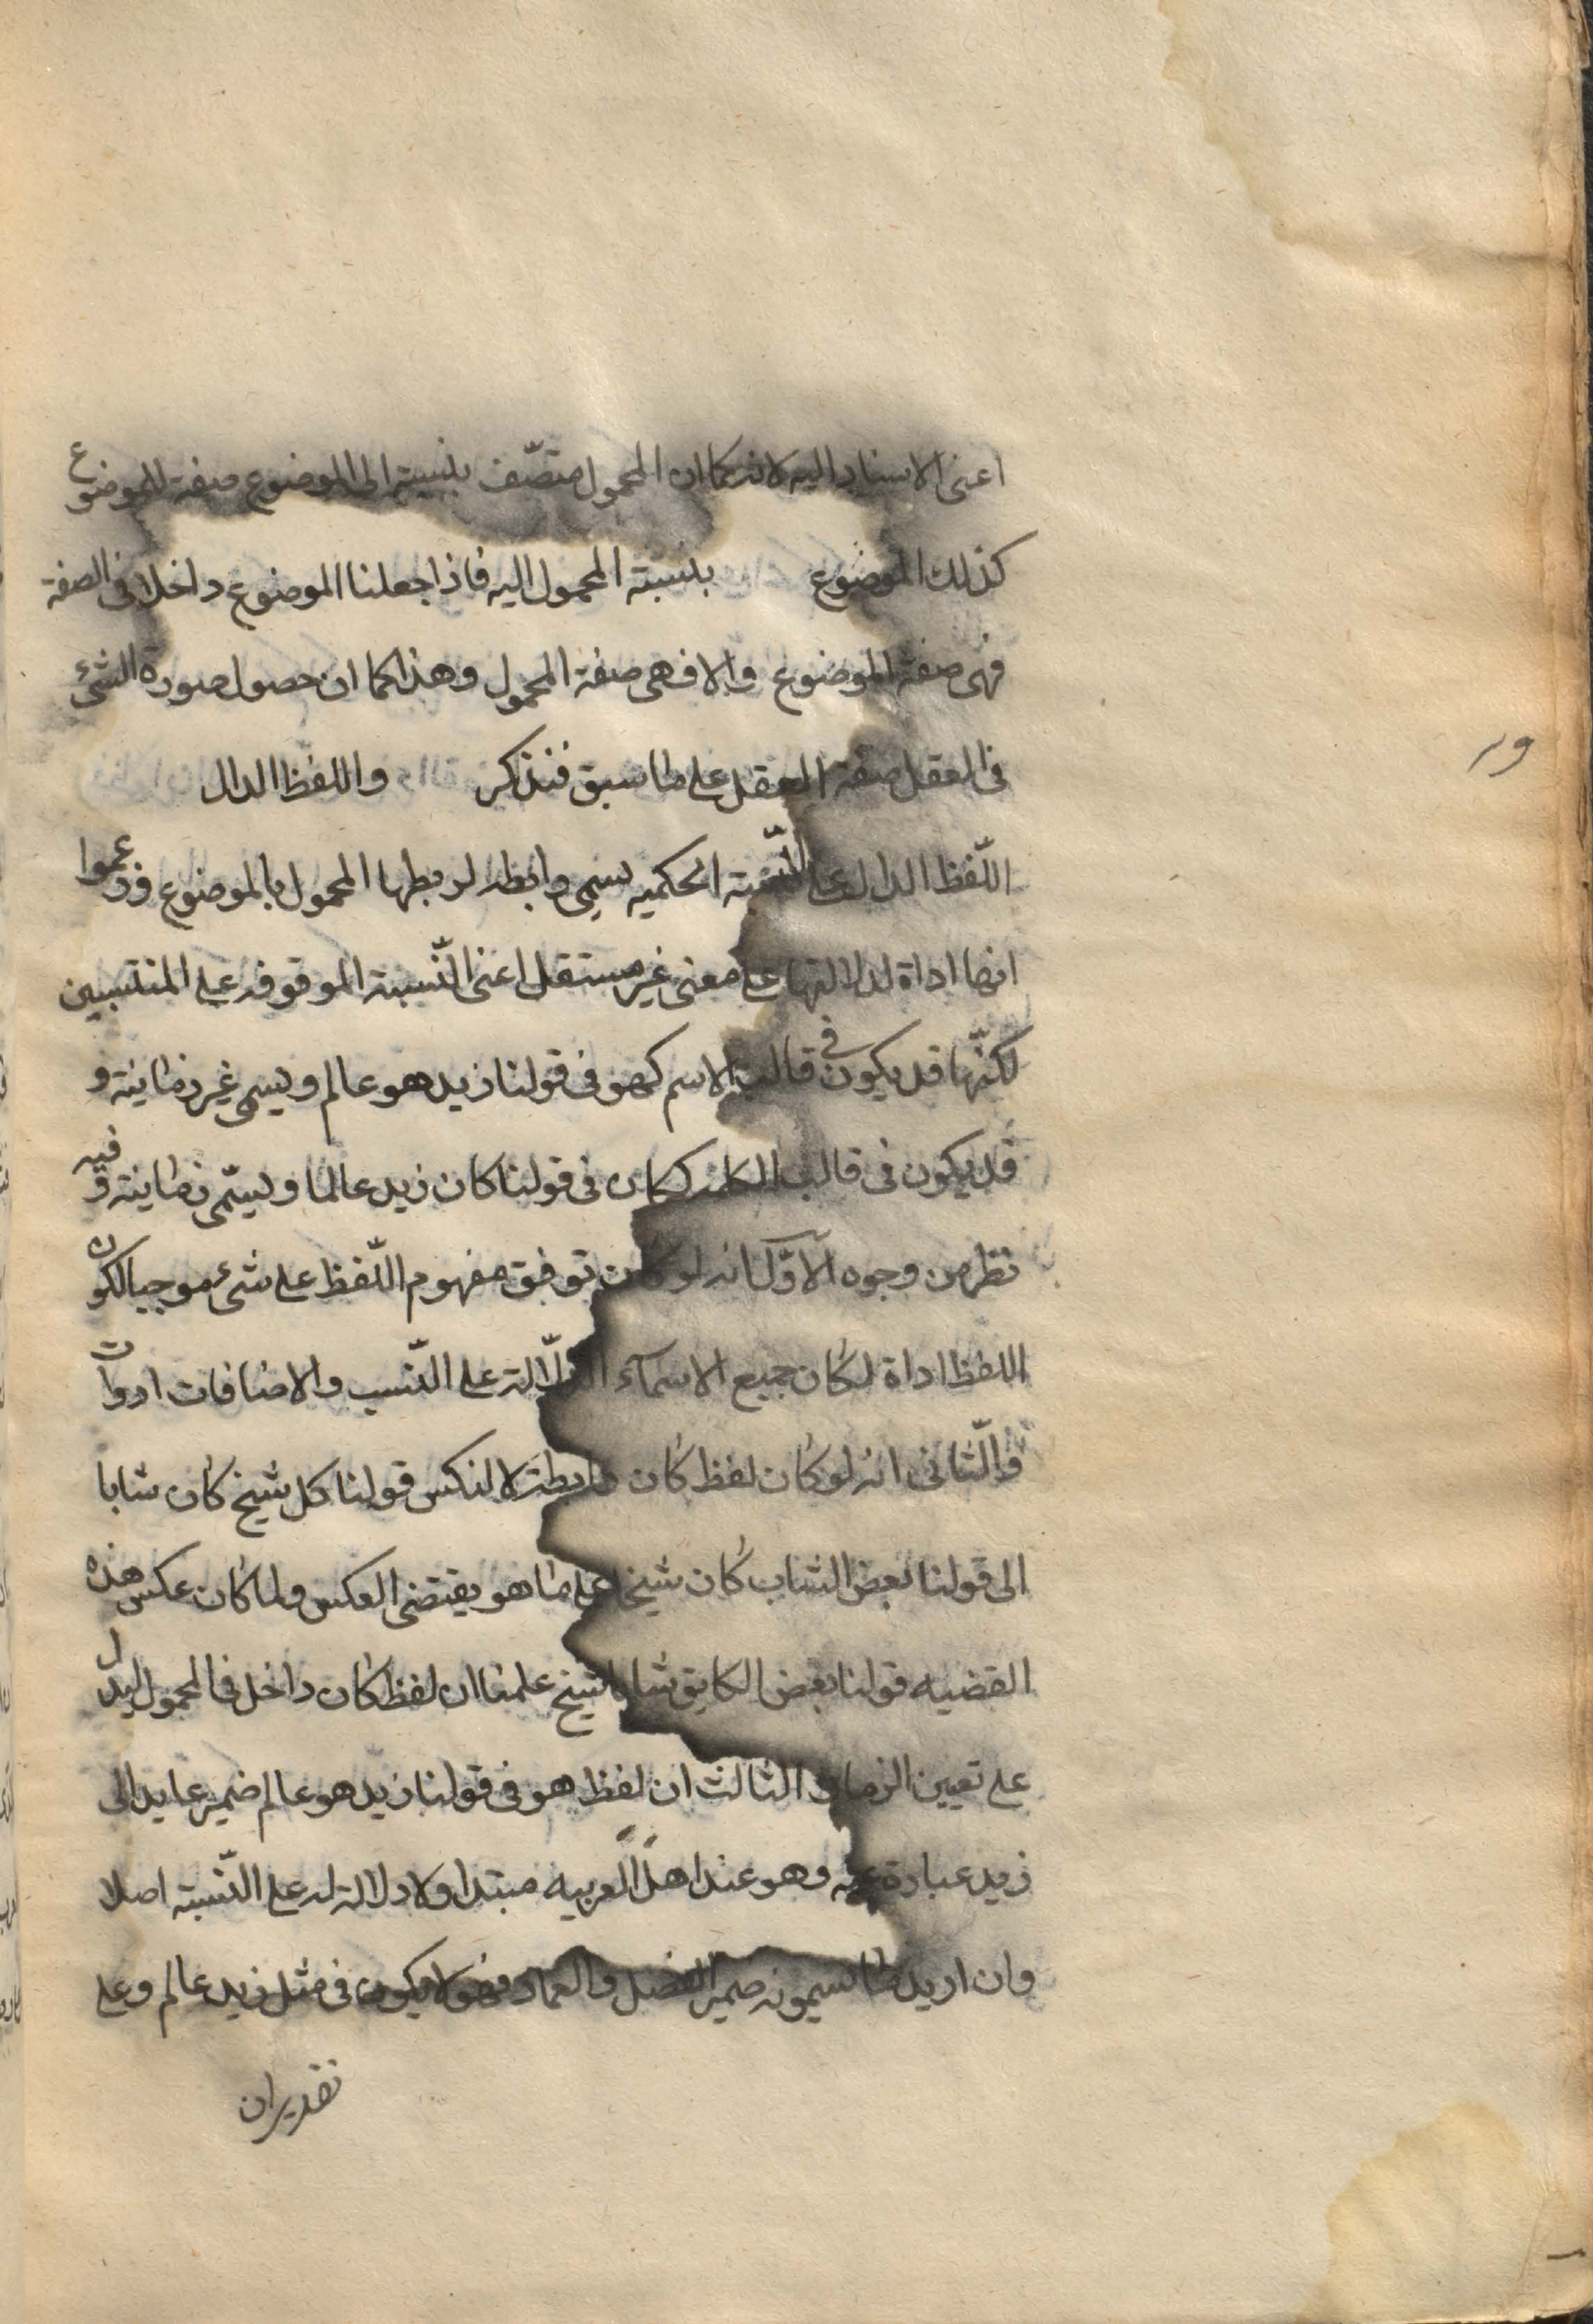 اعنى الاسناد اليه لانه كما ان المحمول متصّف بنسبته الى الموضوع صفة للموضوع
كذلك الموضوع بنسبته المحمول اليه فاذا جعلنا الموضوع داخلا فى الصفة
فهى صفة الموضوع والا فهى صفة المحمول وهذا كما ان حصول صورة الشئ
فى العقل صفة العقل على ما سبق فنذكر واللفظ الدال
اللّفظ الدال على النّسبة الحكميه يسمى رابطة لربطها المحمول بالموضوع وزعموا
انها اداة لدلالتها على معنى غير مستقل اعنى النّسبة الموقوفة على المنتسبين
لكنّها قد يكون فى قالب الاسم كهو فى قولنا زيد هو عالم ويسمى غير زمانية و
قد يكون فى قالب الكلمة ككان فى قولنا كان زيد عالما ويسّمى زمانية وفيه
نظر من وجوه الآوّل انه لو كان توقف مفهوم اللّفظ على شئ موجبا لكون
اللفظ اداة لكان جميع الاسمآء الدّالة على النّسب والاضافات ادوات
والثّانى انه لو كان لفظ كان رابطة لانعكس قولنا كل شيخ كان شابا
الى قولنا بعض الشاب كان شيخا على ما هو يقتضى العكس ولما كان عكس هذه
القضيه قولنا بعض الكاين شابا شيخ علمنا ان لفظ كان داخل فى المحمول ليدل
على تعيين الزمان والثالث ان لفظ هو فى قولنا زيد هو عالم ضمير عايد الى
زيد عبارة عنه وهو عند اهل العربيه مبتدا ولا دلالة له على النّسبة اصلا
وان اريد ما يسمونه ضمير الفصل والعماد فهو لا يكون فى مثل زيد عالم وعلى
تقديران